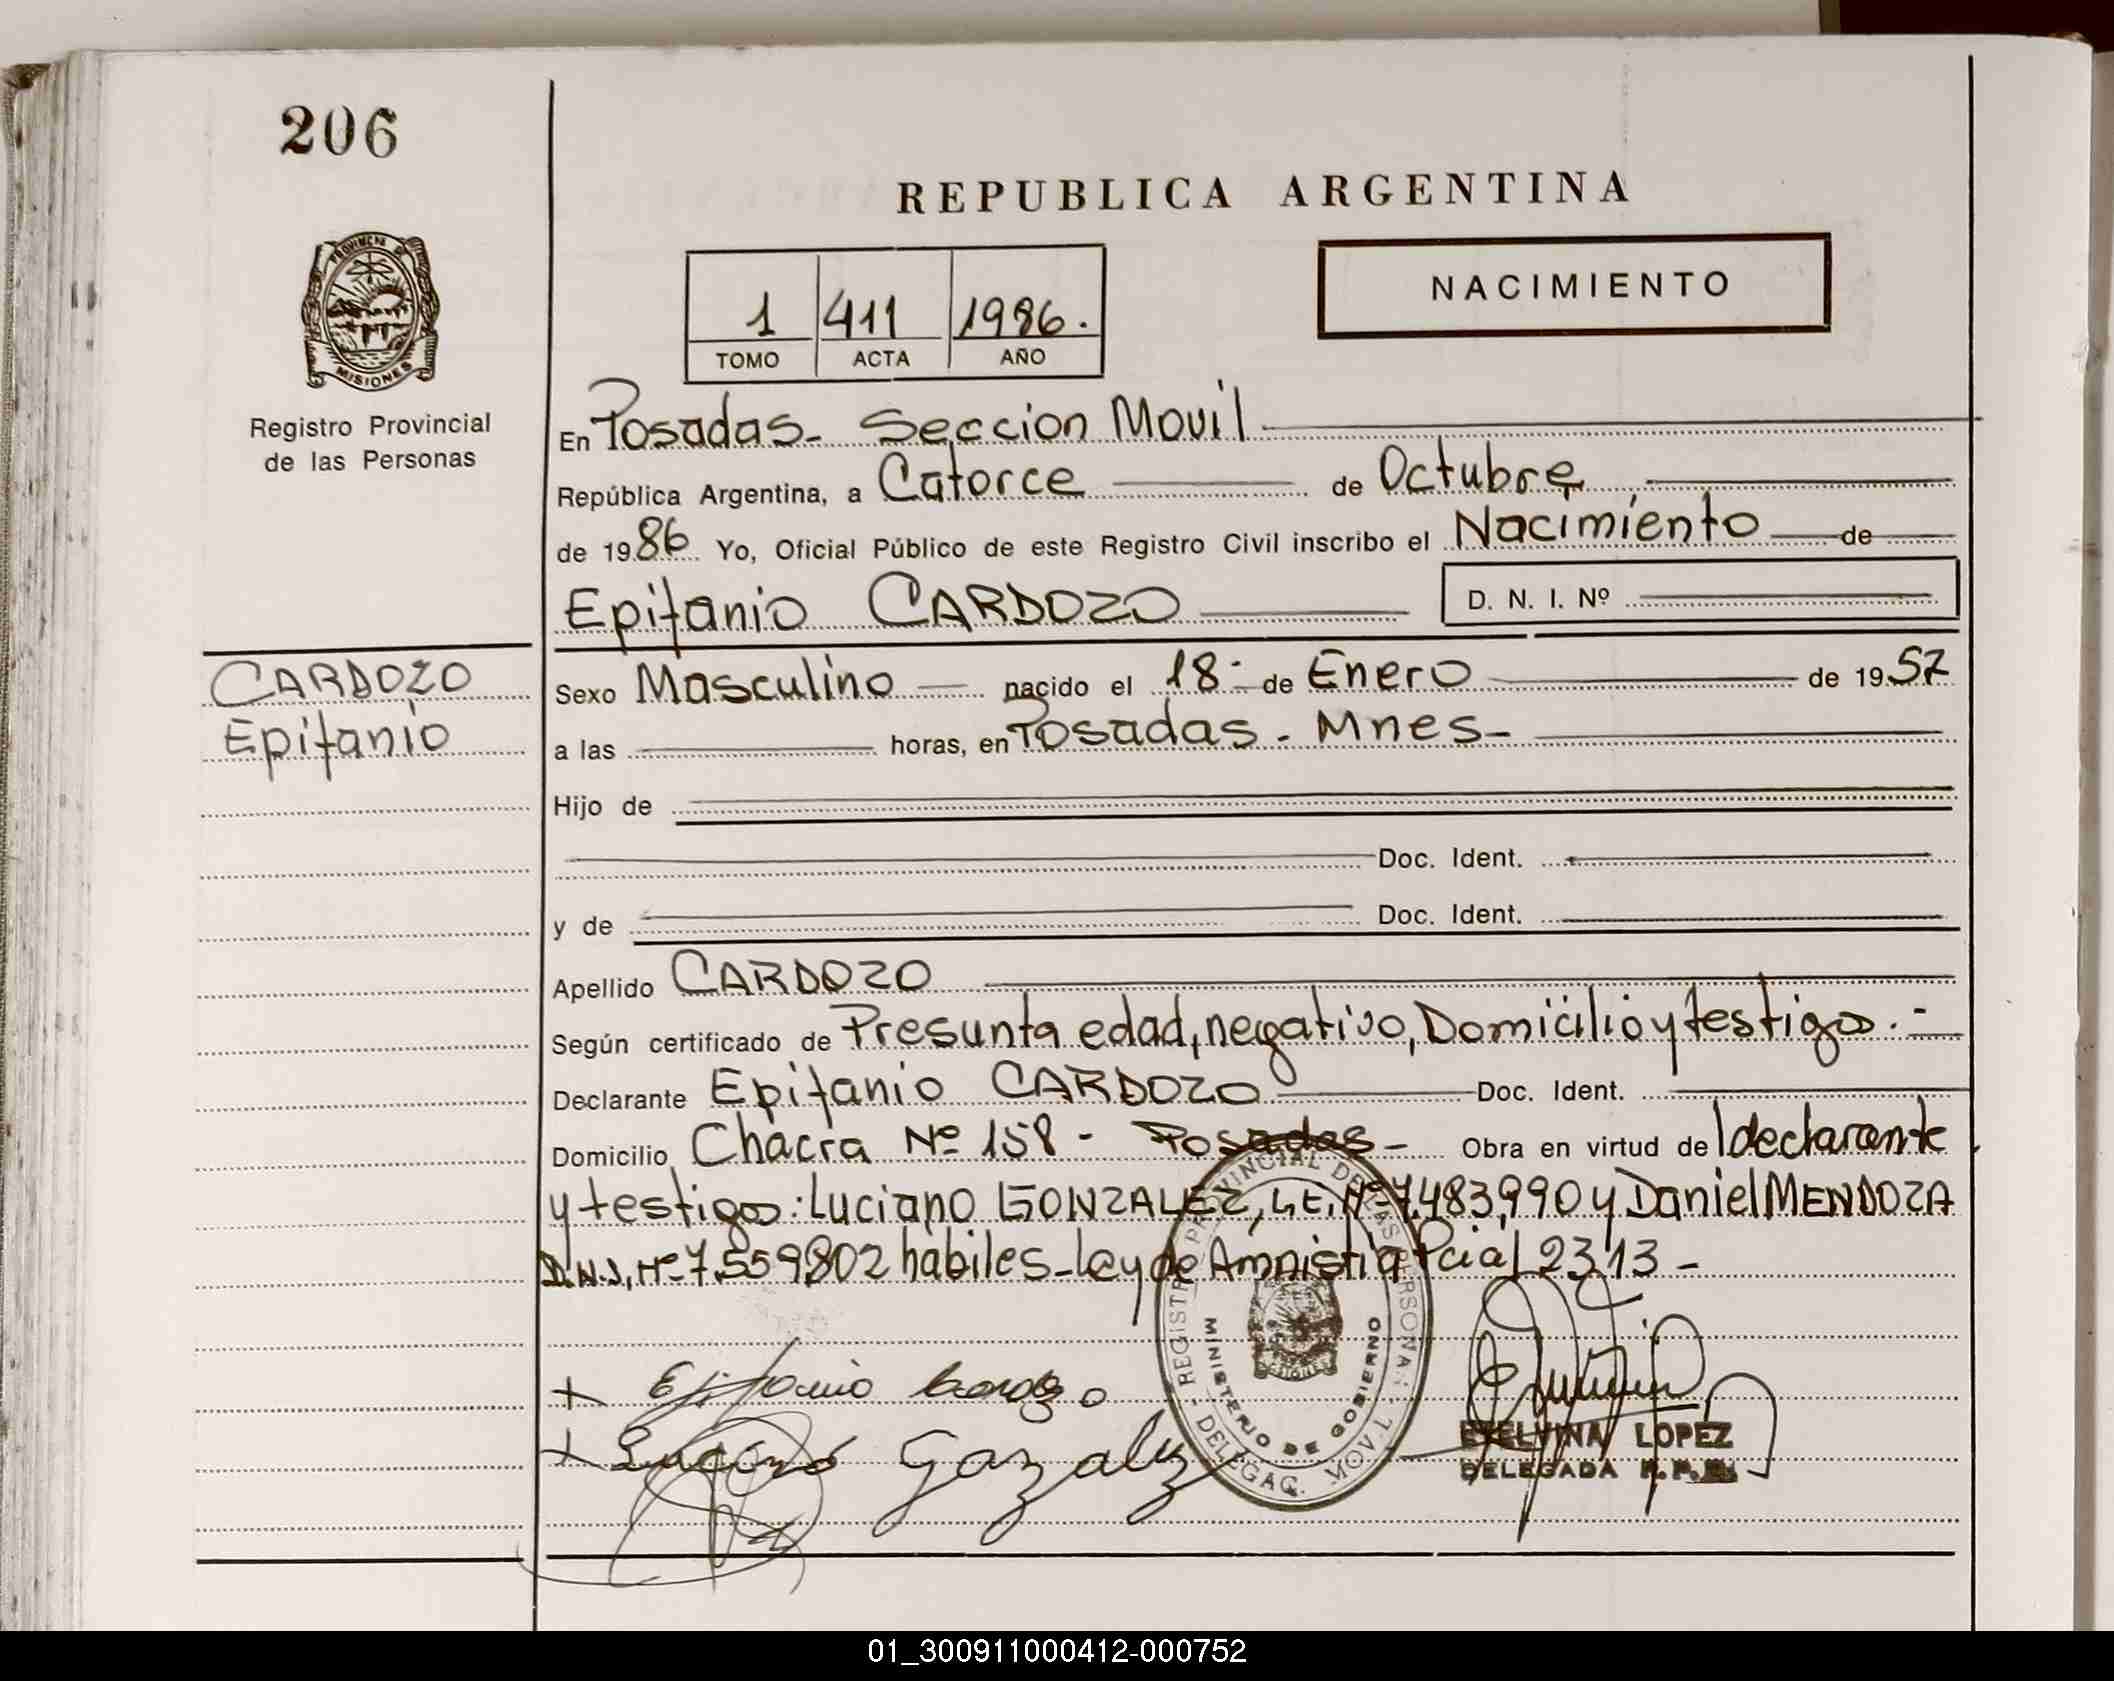 206
REPUBLICA ARGENTINA
NACIMIENTO
1 411 1986.
TOMO ACTA AÑO
PROVINCIA DE MISIONES
Registro Provincial
de las Personas
En Posadas - Seccion Movil
República Argentina, a Catorce de Octubre
de 1986 Yo, Oficial Público de este Registro Civil inscribo el Nacimiento de
Epifanio CARDOZO D. N. I. Nº
CARDOZO
Epifanio
Sexo Masculino nacido el 18 - de Enero de 1957
a las horas, en Posadas - Mnes -
Hijo de
Doc. Ident.
y de Doc. Ident.
Apellido CARDOZO
Según certificado de Presunta edad, negativo, Domicilio y testigos. -
Declarante Epifanio CARDOZO Doc. Ident.
Domicilio Chacra Nº 158 - Posadas - Obra en virtud de l declarante
y testigos: Luciano GONZALEZ, L.E. Nº 7.483,990 y Daniel MENDOZA
D.N.I, Nº 7.559802 habiles - Ley de Amnistia Pcial 2313 -
REGISTRO PROVINCIAL DE LAS PERSONAS
MINISTERIO DE GOBIERNO
DELEGAC. MOVIL
+ Epifanio Cardozo
+ Luciano Gazalez
ETELVINA LOPEZ
DELEGADA R.P.P.
01_300911000412-000752